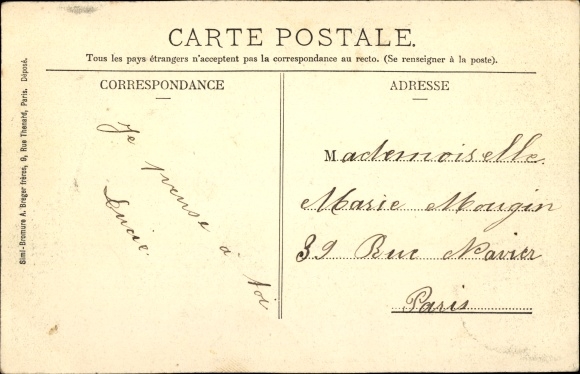 CARTE POSTALE.
Tous les pays étrangers n'acceptent pas la correspondance au recto. (Se renseigner à la poste).
CORRESPONDANCE
Je pense à toi
Lucie.
ADRESSE
Mademoiselle.
Marie Mougin
39 Rue Navier
Paris
Simi-Bromure A. Breger frères, 9, Rue Thenard, Paris. Déposé.